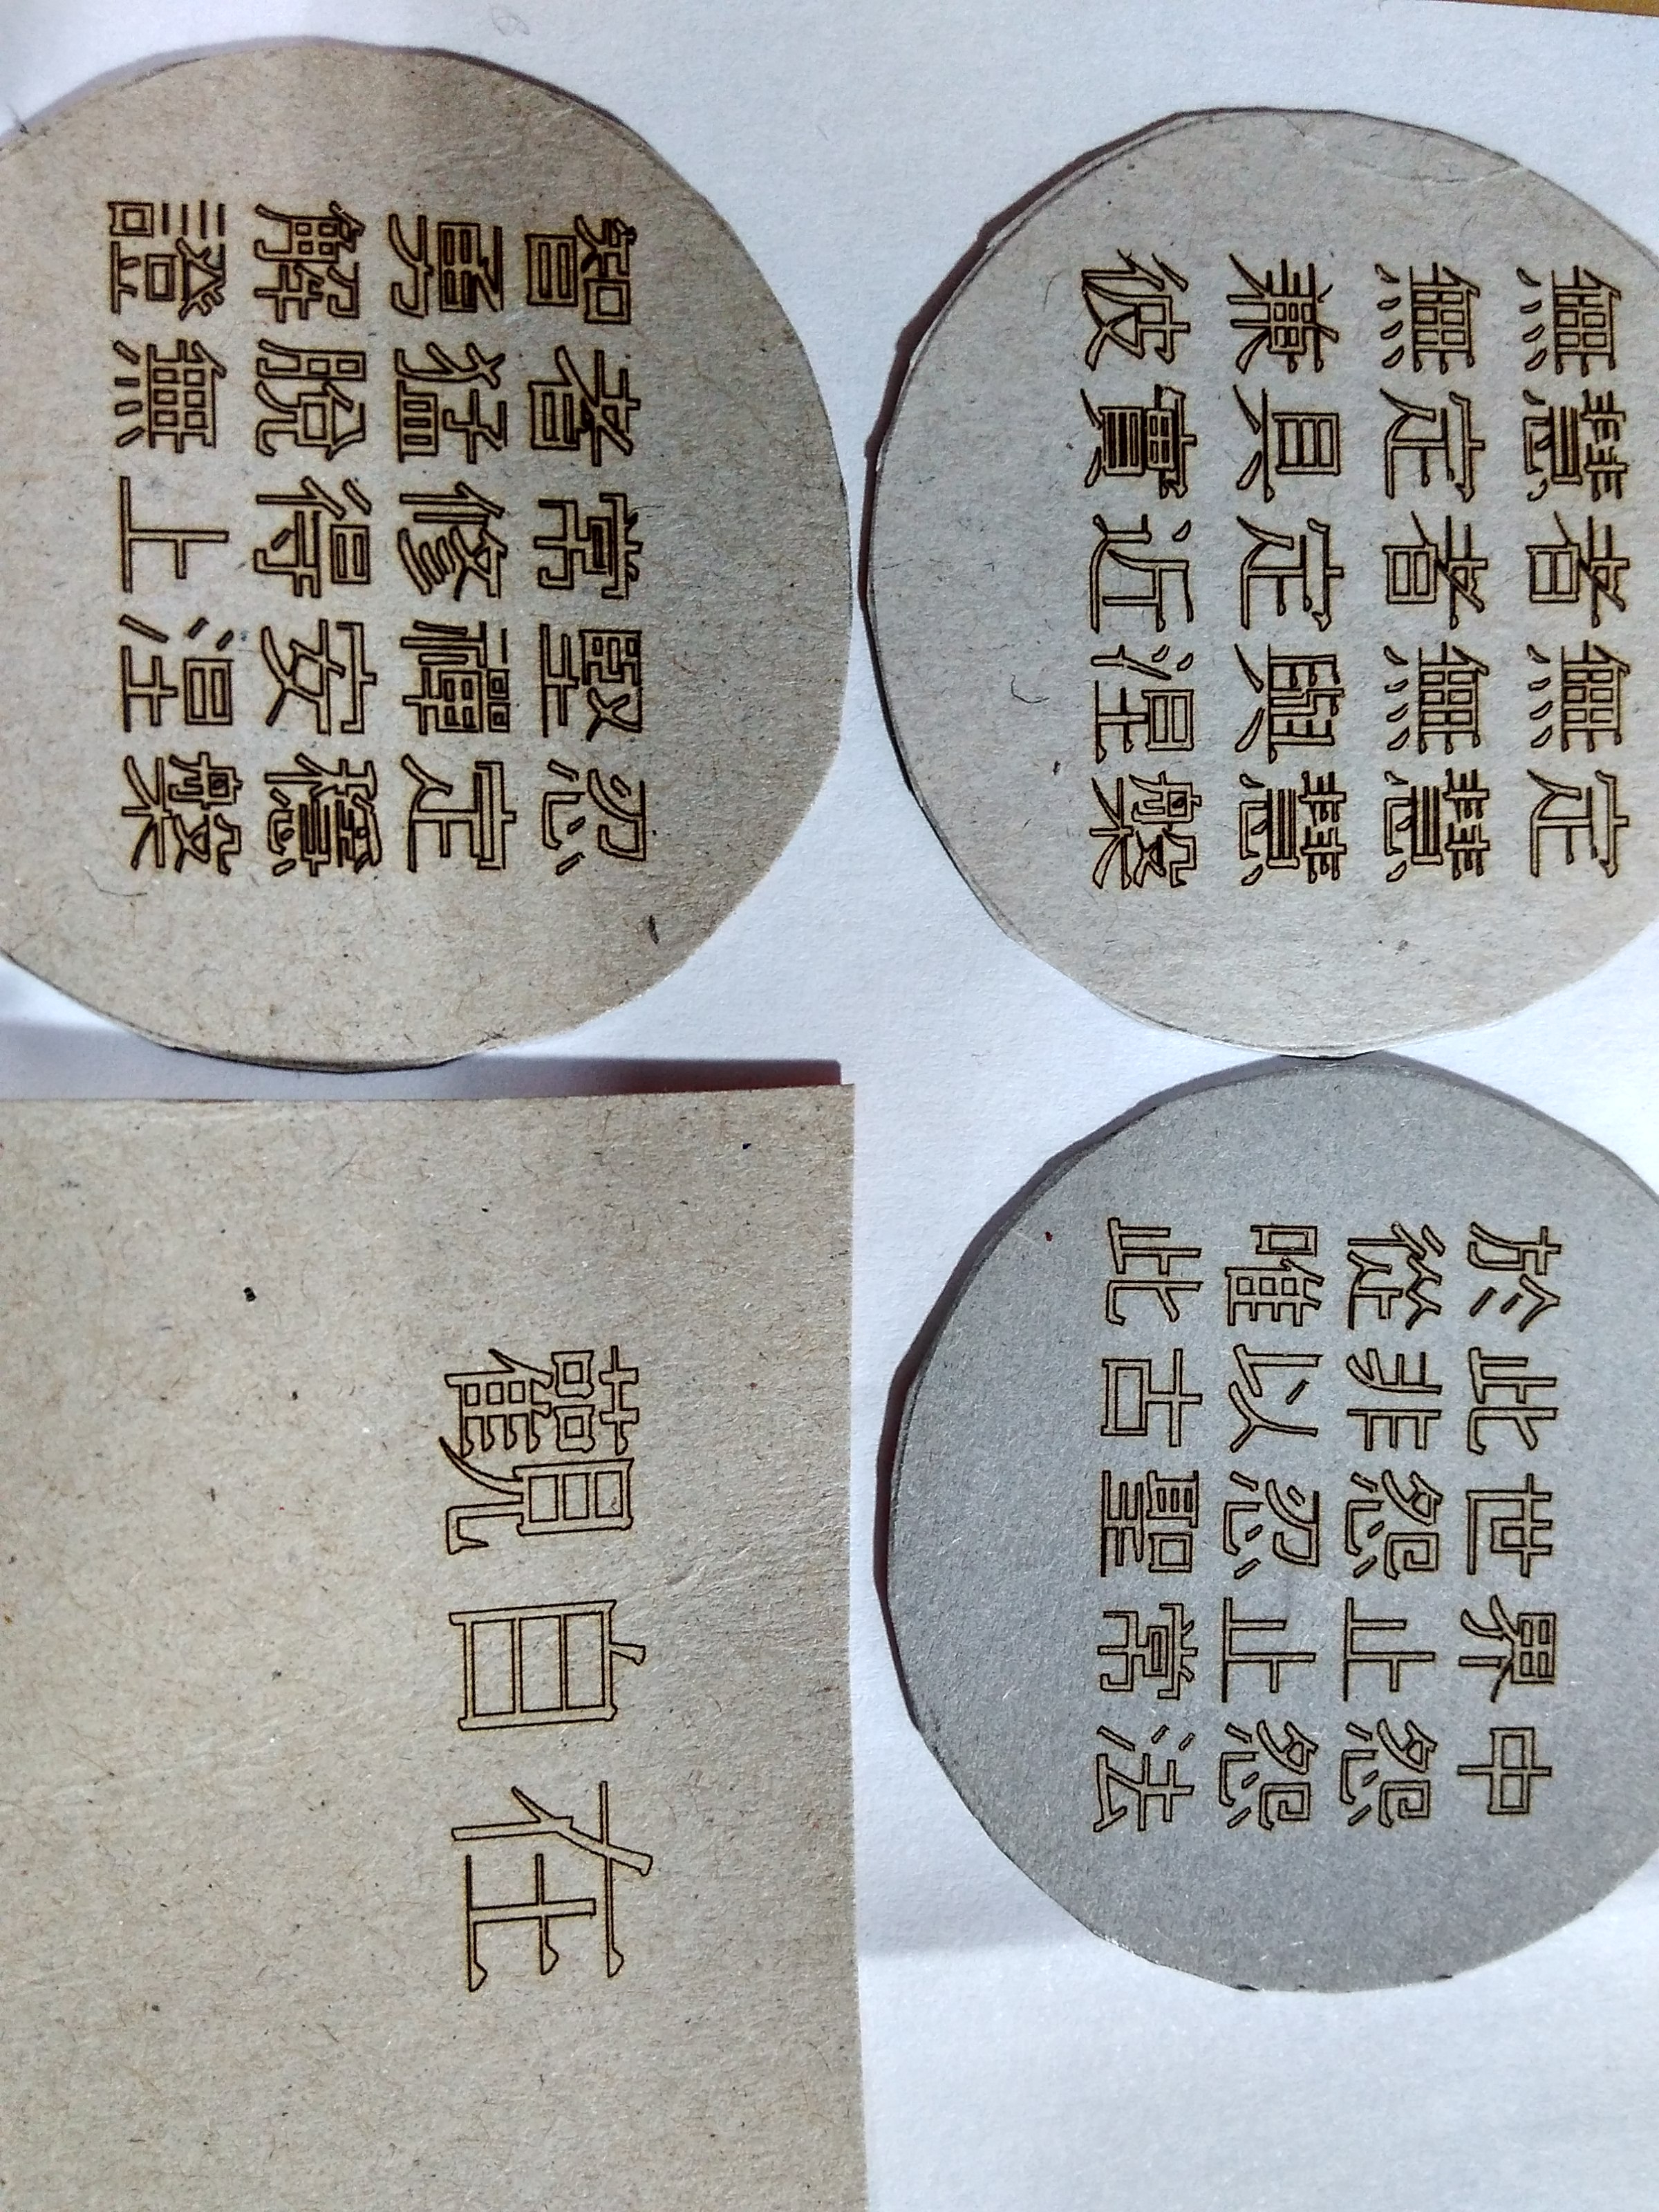 無慧者無定
無定者無慧
兼具定與慧
彼實近涅槃
於此世界中
從非怨止怨
唯以忍止怨
此古聖常法
智者常堅忍
勇猛修禪定
解脫得安穩
證無上涅槃
觀自在